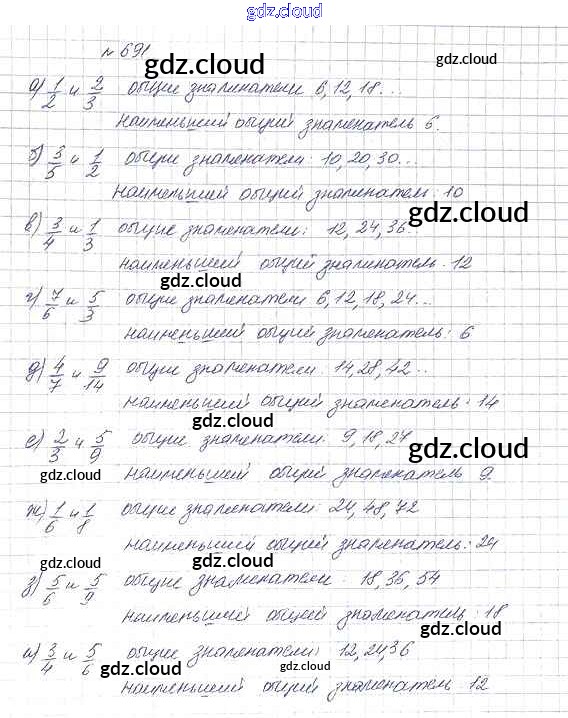 gdz.cloud
№ 691
gdz.cloud
а) 1/2 и 2/3 общие знаменатели 6, 12, 18...
gdz.cloud
наименьший общий знаменатель 6.
б) 3/5 и 1/2 общие знаменатели: 10, 20, 30...
наименьший общий знаменатель: 10
gdz.cloud
в) 3/4 и 1/3 общие знаменатели: 12, 24, 36..
наименьший общий знаменатель. 12
gdz.cloud
г) 7/6 и 5/3 общие знаменатели 6, 12, 18, 24...
наименьший общий знаменатель: 6
д) 4/7 и 9/14 общие знаменатели. 14, 28, 42..
наименьший общий знаменатель: 14
gdz.cloud
е) 2/3 и 5/9 общие знаменатели: 9, 18, 27
gdz.cloud
gdz.cloud
наименьший общий знаменатель 9.
ж) 1/6 и 1/8 общие знаменатели: 24, 48, 72
gdz.cloud
наименьший общий знаменатель: 24
gdz.cloud
gdz.cloud
з) 5/6 и 5/9 общие знаменатели: 18, 36, 54
наименьший общий знаменатель: 18
gdz.cloud
и) 3/4 и 5/6 общие знаменатели: 12, 24, 36
gdz.cloud
gdz.cloud
gdz.cloud
наименьший общий знаменатель 12